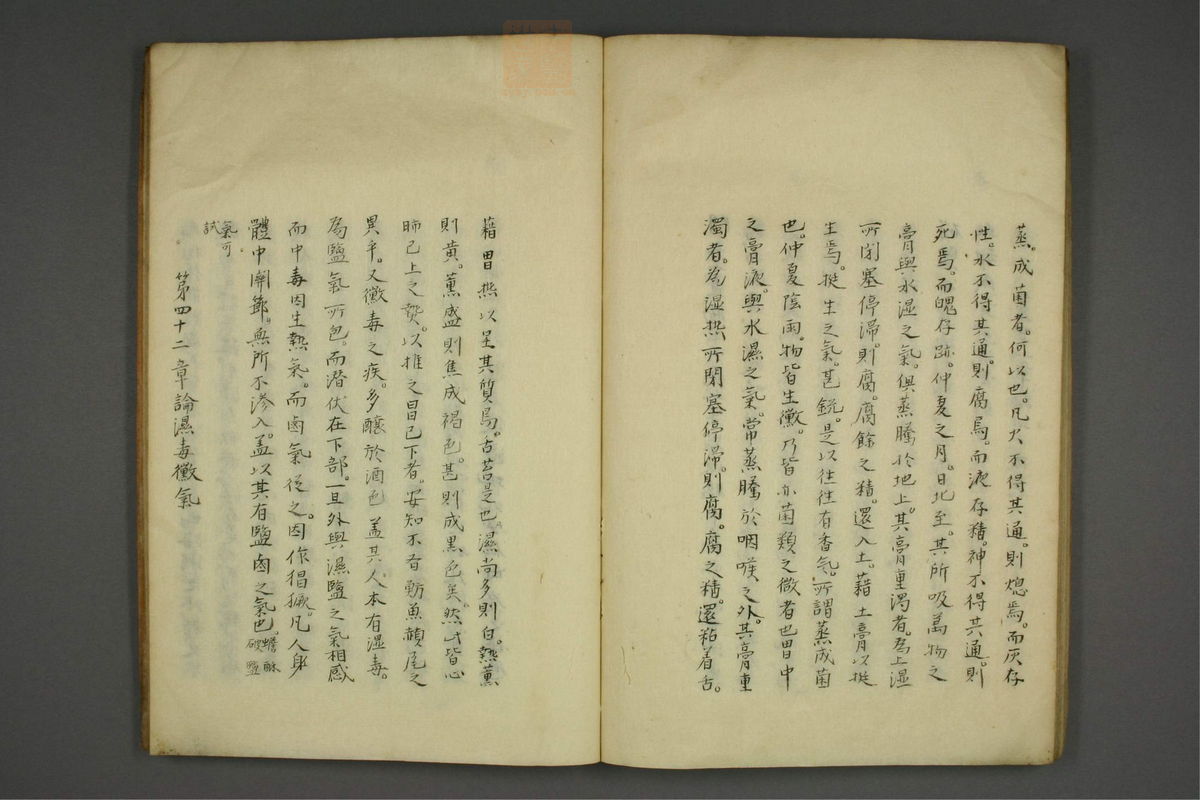 蒸。成菌者。何以也。凡火不得其通。則熄焉。而灰存
性。水不得其通。則腐焉。而液存精。神不得其通。則
死焉。而魄存跡。仲夏之月。日北至。其所吸萬物之
膏與水湿之氣。俱蒸騰於地上。其膏重濁者。為上湿
所閉塞停滞。則腐。腐餘之精。還入土。藉土膏以挺
生焉。挺生之氣。甚銳。是以往往有香氣。所謂蒸成菌
也。仲夏陰雨。物皆生黴。乃皆亦菌類之微者也胃中
之膏液。與水濕之氣。常蒸騰於咽喉之外。其膏重
濁者。為湿热所閉塞停滞。則腐。腐之精。還粘着舌。
藉胃热以呈其質焉。舌苔是也濕尚多則白。熱薫
則黄。薫盛則焦成褐色。甚則成黒色矣。然此皆心
肺已上之
以推之胃已下者。安知不有魴魚赬尾之
異乎。又黴毒之疾。多釀於酒色盖其人。本有湿毒。
為鹽氣所包。而潜伏在下部。一旦外與濕鹽之氣相感
而中毒因生熱氣。而鹵氣從之。因作猖獗。凡人身
體中関節。無所不滲入。盖以其有鹽鹵之氣也。蟾酥破鹽
氣可試。
第四十二章論濕毒黴氣